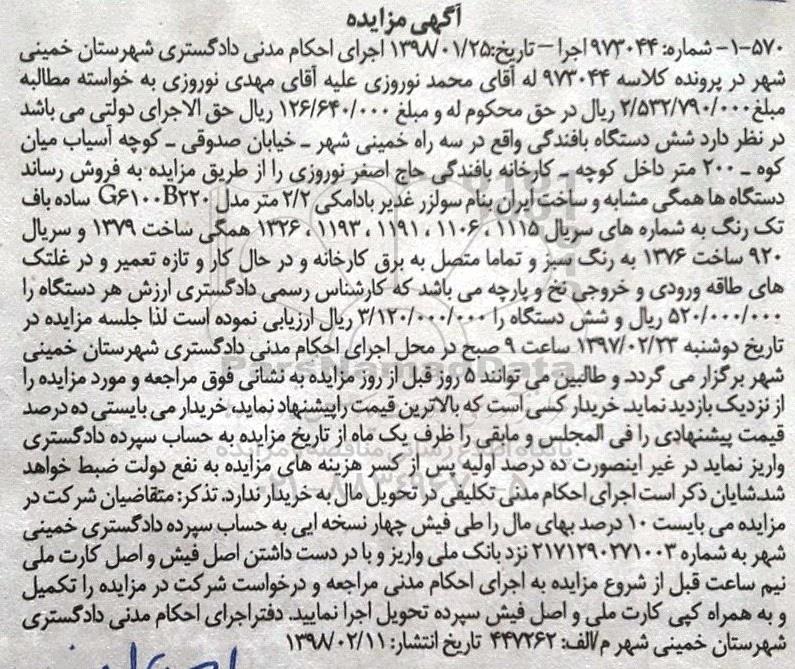 آگهی مزایده
۱-۵۷۰- شماره: ۹۷۳۰۴۴ اجرا – تاریخ:۱۳۹۸/۰۱/۲۵ اجرای احکام مدنی دادگستری شهرستان خمینی
شهر در پرونده کلاسه ۹۷۳۰۴۴ له آقای محمد نوروزی علیه آقای مهدی نوروزی به خواسته مطالبه
مبلغ۲/۵۳۲/۷۹۰/۰۰۰ ریال در حق محکوم له و مبلغ ۱۲۶/۶۴۰/۰۰۰ ریال حق الاجرای دولتی می باشد
در نظر دارد شش دستگاه بافندگی واقع در سه راه خمینی شهر ـ خیابان صدوقی ـ کوچه آسیاب میان
کوه ـ ۲۰۰ متر داخل کوچه ـ کارخانه بافندگی حاج اصغر نوروزی را از طریق مزایده به فروش رساند
دستگاه ها همگی مشابه و ساخت ایران بنام سولزر غدیر بادامکی ۲/۲ متر مدل G۶۱۰۰B۲۲۰ ساده باف
تک رنگ به شماره های سریال ۱۱۱۵ ، ۱۱۰۶ ، ۱۱۹۱ ، ۱۱۹۳ ، ۱۳۲۶ همگی ساخت ۱۳۷۹ و سریال
۹۲۰ ساخت ۱۳۷۶ به رنگ سبز و تماما متصل به برق کارخانه و در حال کار و تازه تعمیر و در غلتک
های طاقه ورودی و خروجی نخ و پارچه می باشد که کارشناس رسمی دادگستری ارزش هر دستگاه را
۵۲۰/۰۰۰/۰۰۰ ریال و شش دستگاه را ۳/۱۲۰/۰۰۰/۰۰۰ ریال ارزیابی نموده است لذا جلسه مزایده در
تاریخ دوشنبه ۱۳۹۷/۰۲/۲۳ ساعت ۹ صبح در محل اجرای احکام مدنی دادگستری شهرستان خمینی
شهر برگزار می گردد. و طالبین می توانند ۵ روز قبل از روز مزایده به نشانی فوق مراجعه و مورد مزایده را
از نزدیک بازدید نماید. خریدار کسی است که بالاترین قیمت راپیشنهاد نماید، خریدار می بایستی ده درصد
قیمت پیشنهادی را فی المجلس و مابقی را ظرف یک ماه از تاریخ مزایده به حساب سپرده دادگستری
واریز نماید در غیر اینصورت ده درصد اولیه پس از کسر هزینه های مزایده به نفع دولت ضبط خواهد
شد.شایان ذکر است اجرای احکام مدنی تکلیفی در تحویل مال به خریدار ندارد. تذکر: متقاضیان شرکت در
مزایده می بایست ۱۰ درصد بهای مال را طی فیش چهار نسخه ایی به حساب سپرده دادگستری خمینی
شهر به شماره ۲۱۷۱۲۹۰۲۷۱۰۰۳ نزد بانک ملی واریز و با در دست داشتن اصل فیش و اصل کارت ملی
نیم ساعت قبل از شروع مزایده به اجرای احکام مدنی مراجعه و درخواست شرکت در مزایده را تکمیل
و به همراه کپی کارت ملی و اصل فیش سپرده تحویل اجرا نمایید. دفتراجرای احکام مدنی دادگستری
شهرستان خمینی شهر م/الف: ۴۴۷۲۶۲ تاریخ انتشار: ۱۳۹۸/۰۲/۱۱
ParsNamadData
پایگاه اطلاع رسانی مناقصه و مزایده